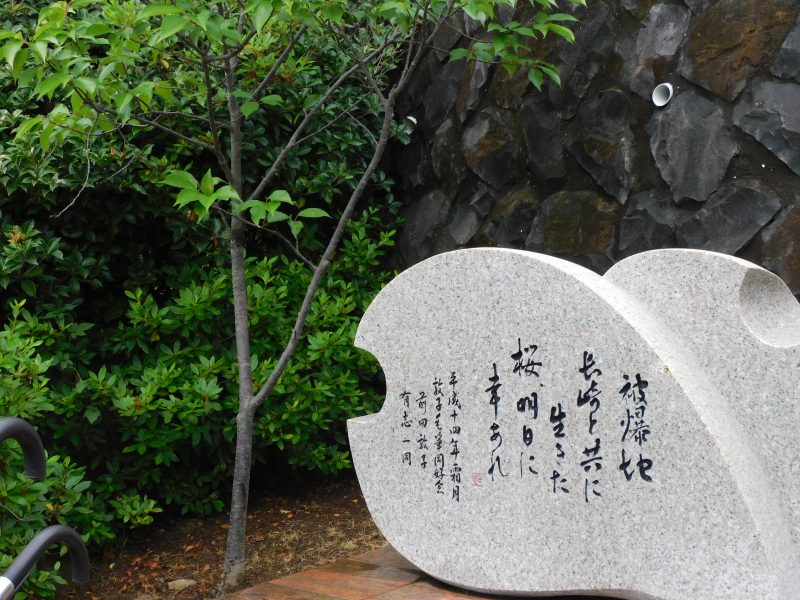 被爆地
長崎と共に
生きた
桜、明日に
幸あれ
平成十四年霜月
敦子毛筆同好会
前田敦子
有志一同